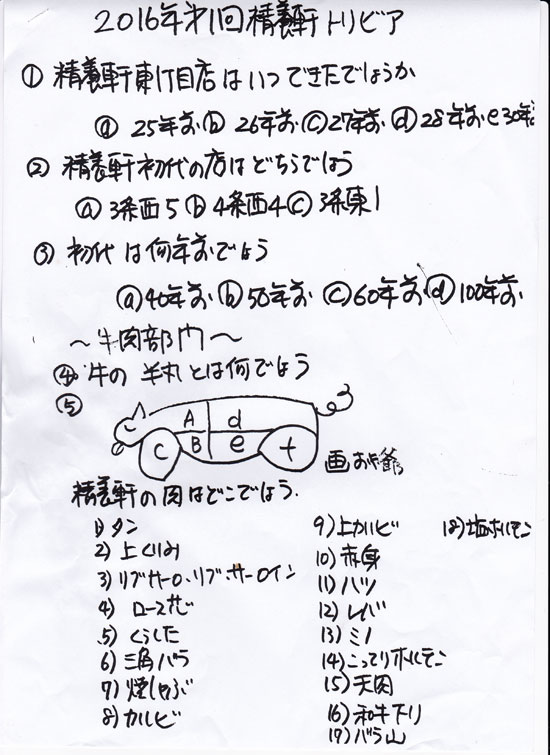 2016年才1回 精養軒トリビア
① 精養軒東1丁目店はいつできたでしょうか
ⓐ 25年前 ⓑ 26年前 ⓒ 27年前 ⓓ 28年前 e 30年前
② 精養軒初代の店はどちらでしょう
ⓐ 3条西5 ⓑ 4条西4 ⓒ 3条東1
③ 初代は何年前でしょう
ⓐ 40年前 ⓑ 50年前 ⓒ 60年前 ⓓ 100年前
～牛肉部門～
④ 牛の羊丸とは何でしょう
⑤
A d
C B e f
画
精養軒の肉はどこでしょう.
1) タン
2) 上くりみ
3) リブサーロ、リブ、サーロイン
4) ロース
5) くらした
6) 三角バラ
7) 焼しゃぶ
8) カルビ
9) 上カルビ
10) 赤身
11) ハツ
12) レバ
13) ミノ
14) こってりホルモン
15) 天肉
16) 和牛下リ
17) バラ山
18) 塩ホルモン